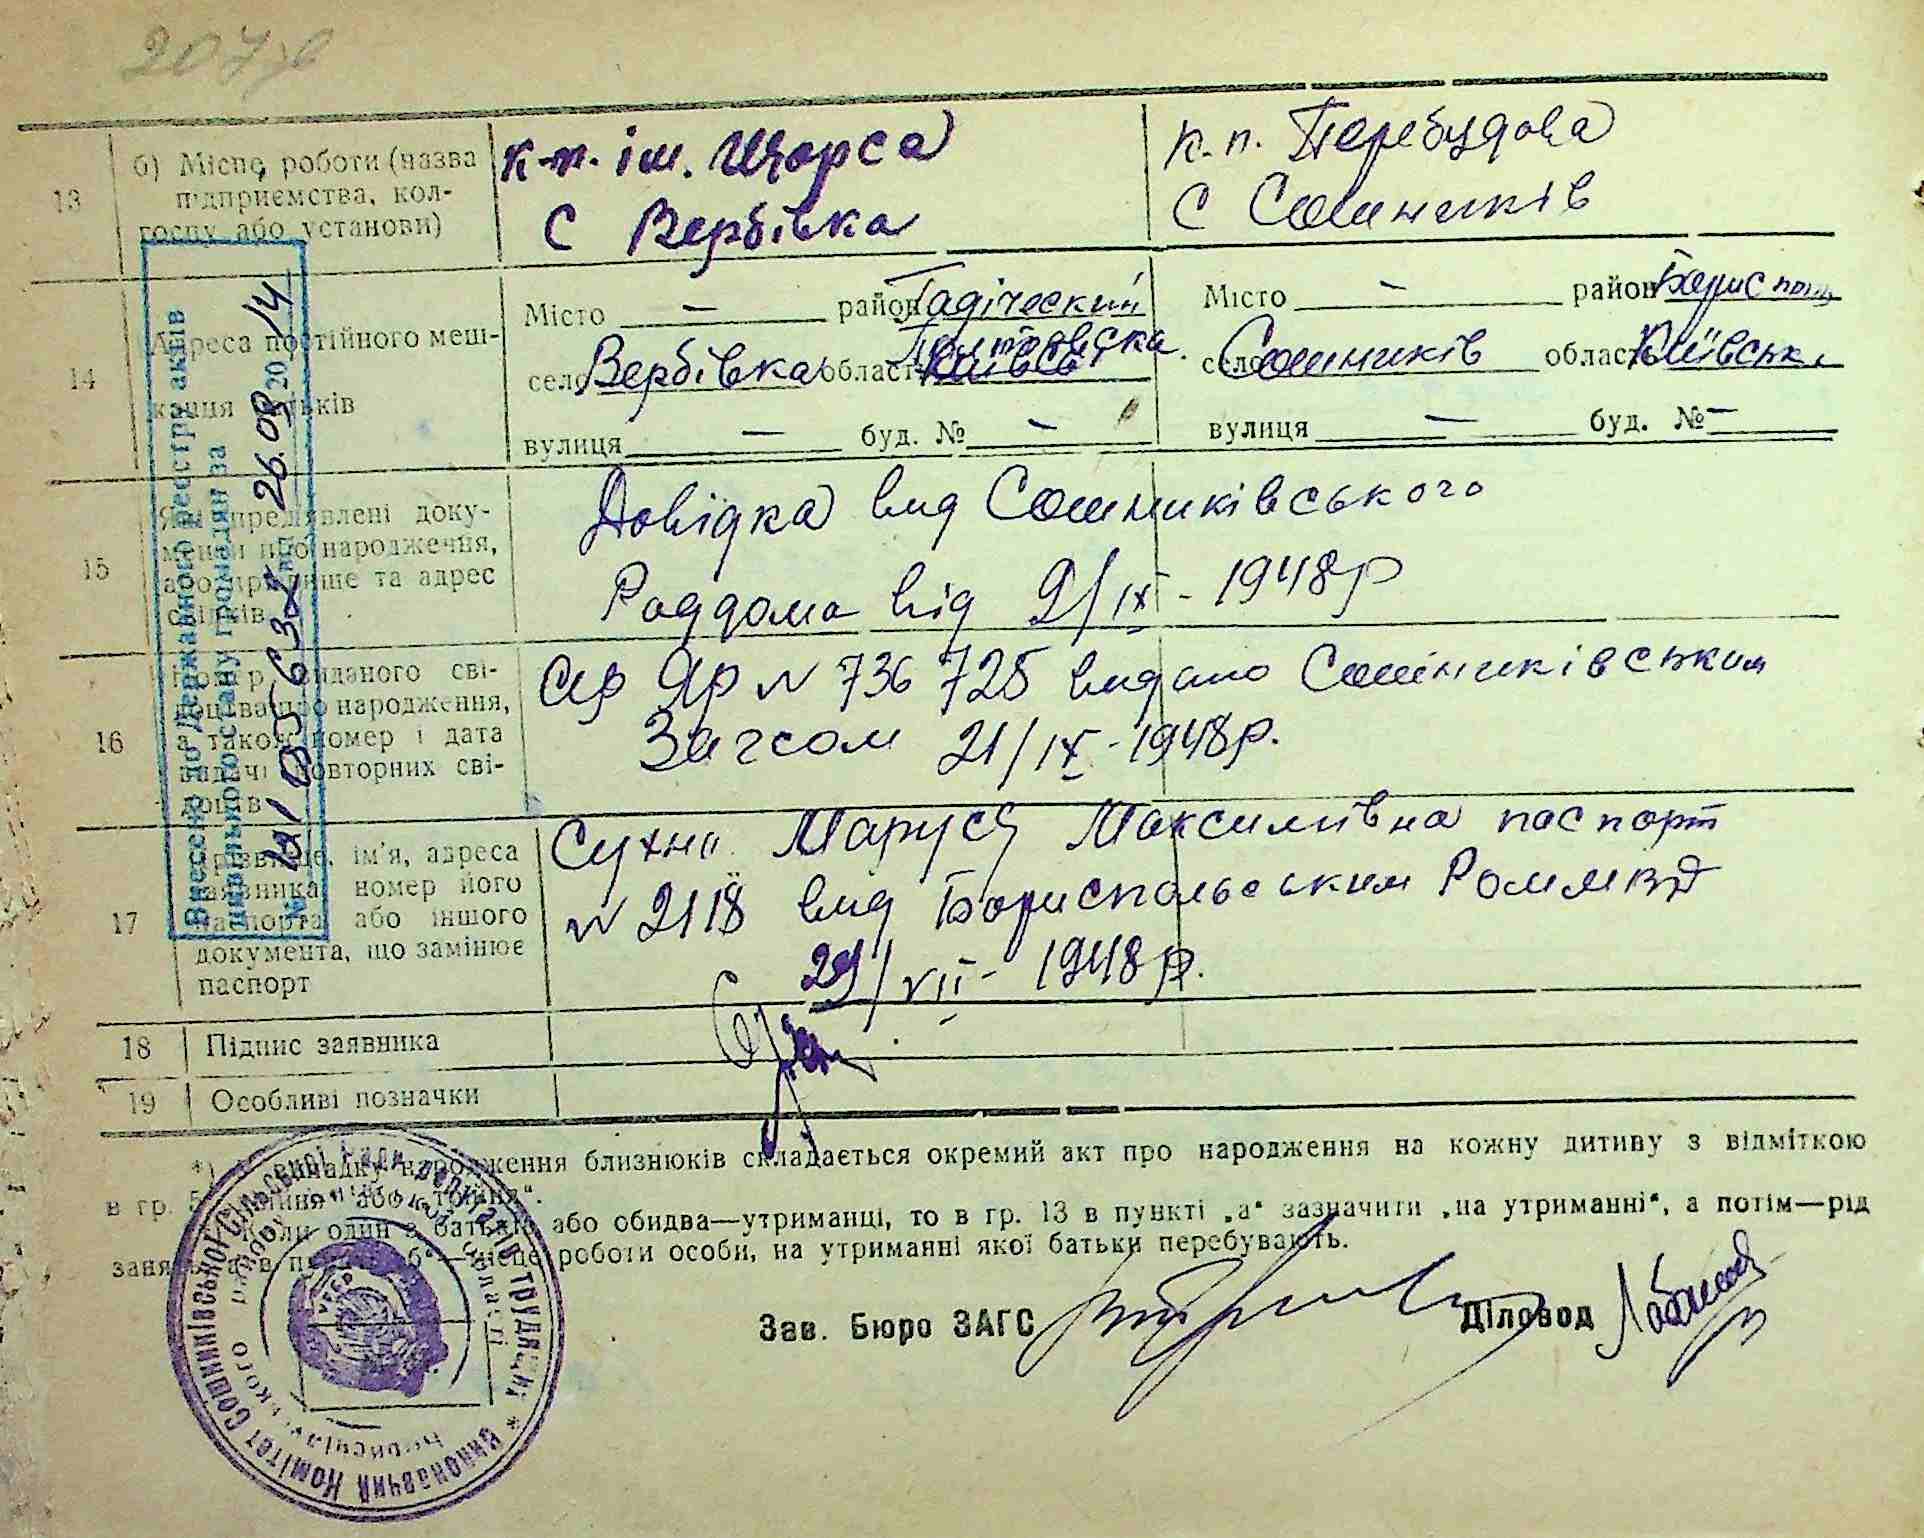 207 зв
13 б) Місце роботи (назва підприємства, колгоспу або установи)
к-п. ім. Щорса
с Вербівка
к. п. Перебудова
с Сошників
14 Адреса постійного мешкання батьків
Місто — район Гадіческий
село Вербівка область Полтавська
вулиця — буд. № —
Місто — район Борисполь
село Сошників область Київськ.
вулиця — буд. № —
15 Які пред'явлені документи про народження, або прізвище та адрес свідків
Довідка вид Сошниківського
Роддома від 21/IX - 1948р
16 Номер виданого свідоцтва про народження, а також номер і дата видачі повторних свідоцтв
ЯР № 736725 видано Сошниківським
Загсом 21/IX - 1948р.
17 Прізвище, ім'я, адреса заявника, номер його паспорта або іншого документа, що замінює паспорт
Сухно Маруся Максимівна паспорт
№ 2118 вид Бориспольським
29/VII - 1948р.
18 Підпис заявника
19 Особливі позначки
*) У випадку народження близнюків складається окремий акт про народження на кожну дитину з відміткою
в гр. 5 „двійня“ або „трійня“.
Коли один з батьків або обидва—утриманці, то в гр. 13 в пункті „а“ зазначити „на утриманні“, а потім—рід
занять, а в пункті „б“—місце роботи особи, на утриманні якої батьки перебувають.
Зав. Бюро ЗАГС
Діловод
Внесено до Державного реєстру актів
цивільного стану громадян за
від 26.08.2014
Виконавчий Комітет Сошниківської Сільської Ради депутатів трудящих *
Бориспільського району Київської області
УРСР